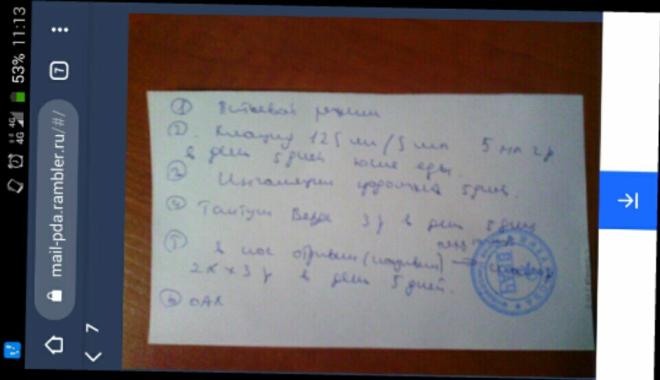 11:13
53%
4G
7
mail-pda.rambler.ru/#/
7
① Питьевой режим
② Клацид 125 мг/5 мл 5 мл 2 р
в день 5 дней после еды.
③ Ингаляции 5 дней.
④ Тантум Верде 3 р в день 5 дней
⑤ в нос отривин (називин) →
2 к x 3 р в день 5 дней.
⑥ ОАК
ВРАЧ